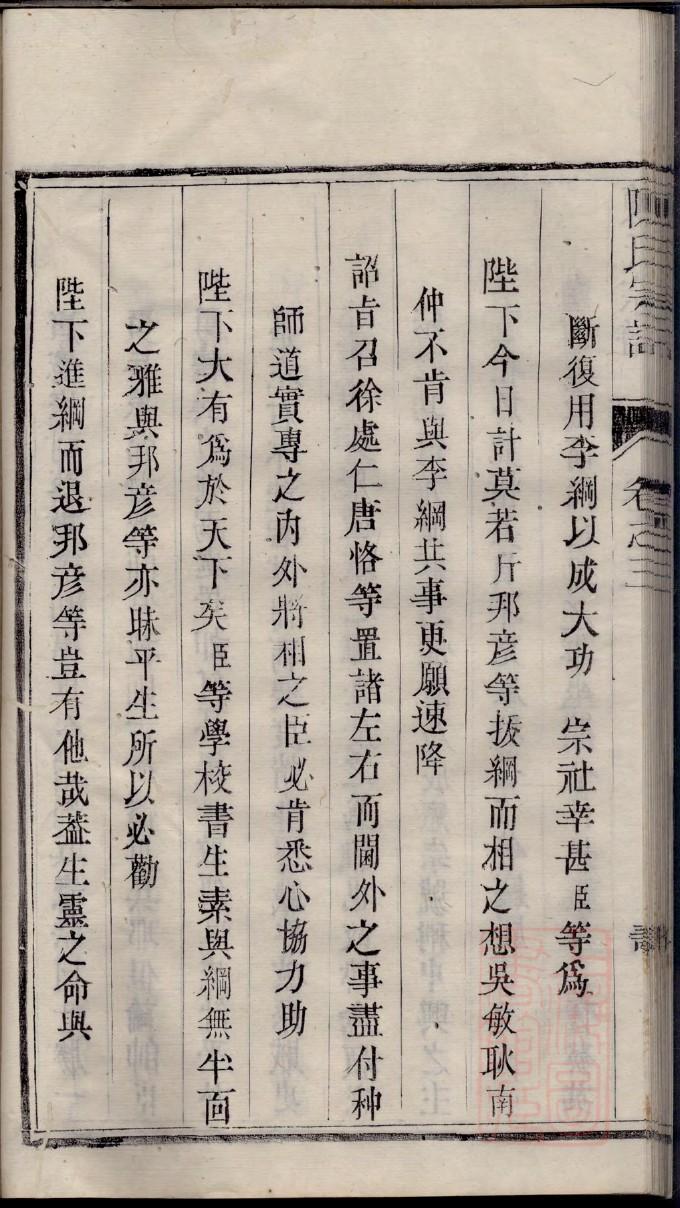 陳氏宗譜 卷之三
斷復用李綱以成大功 宗社幸甚臣等爲
陛下今日計莫若斤邦彦等拔綱而相之想吳敏耿南
仲不肯與李綱共事更願速降
詔旨召徐處仁唐恪等置諸左右而閫外之事盡付种
師道實專之内外將相之臣必肯悉心協力助
陛下大有爲於天下矣臣等學校書生素與綱無半面
之雅與邦彦等亦昧平生所以必勸
陛下進綱而退邦彦等豈有他哉葢生靈之命與